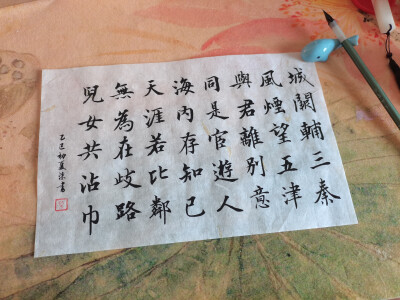 城闕輔三秦
風煙望五津
與君離別意
同是宦遊人
海內存知己
天涯若比鄰
無為在歧路
兒女共沾巾
乙巳初夏